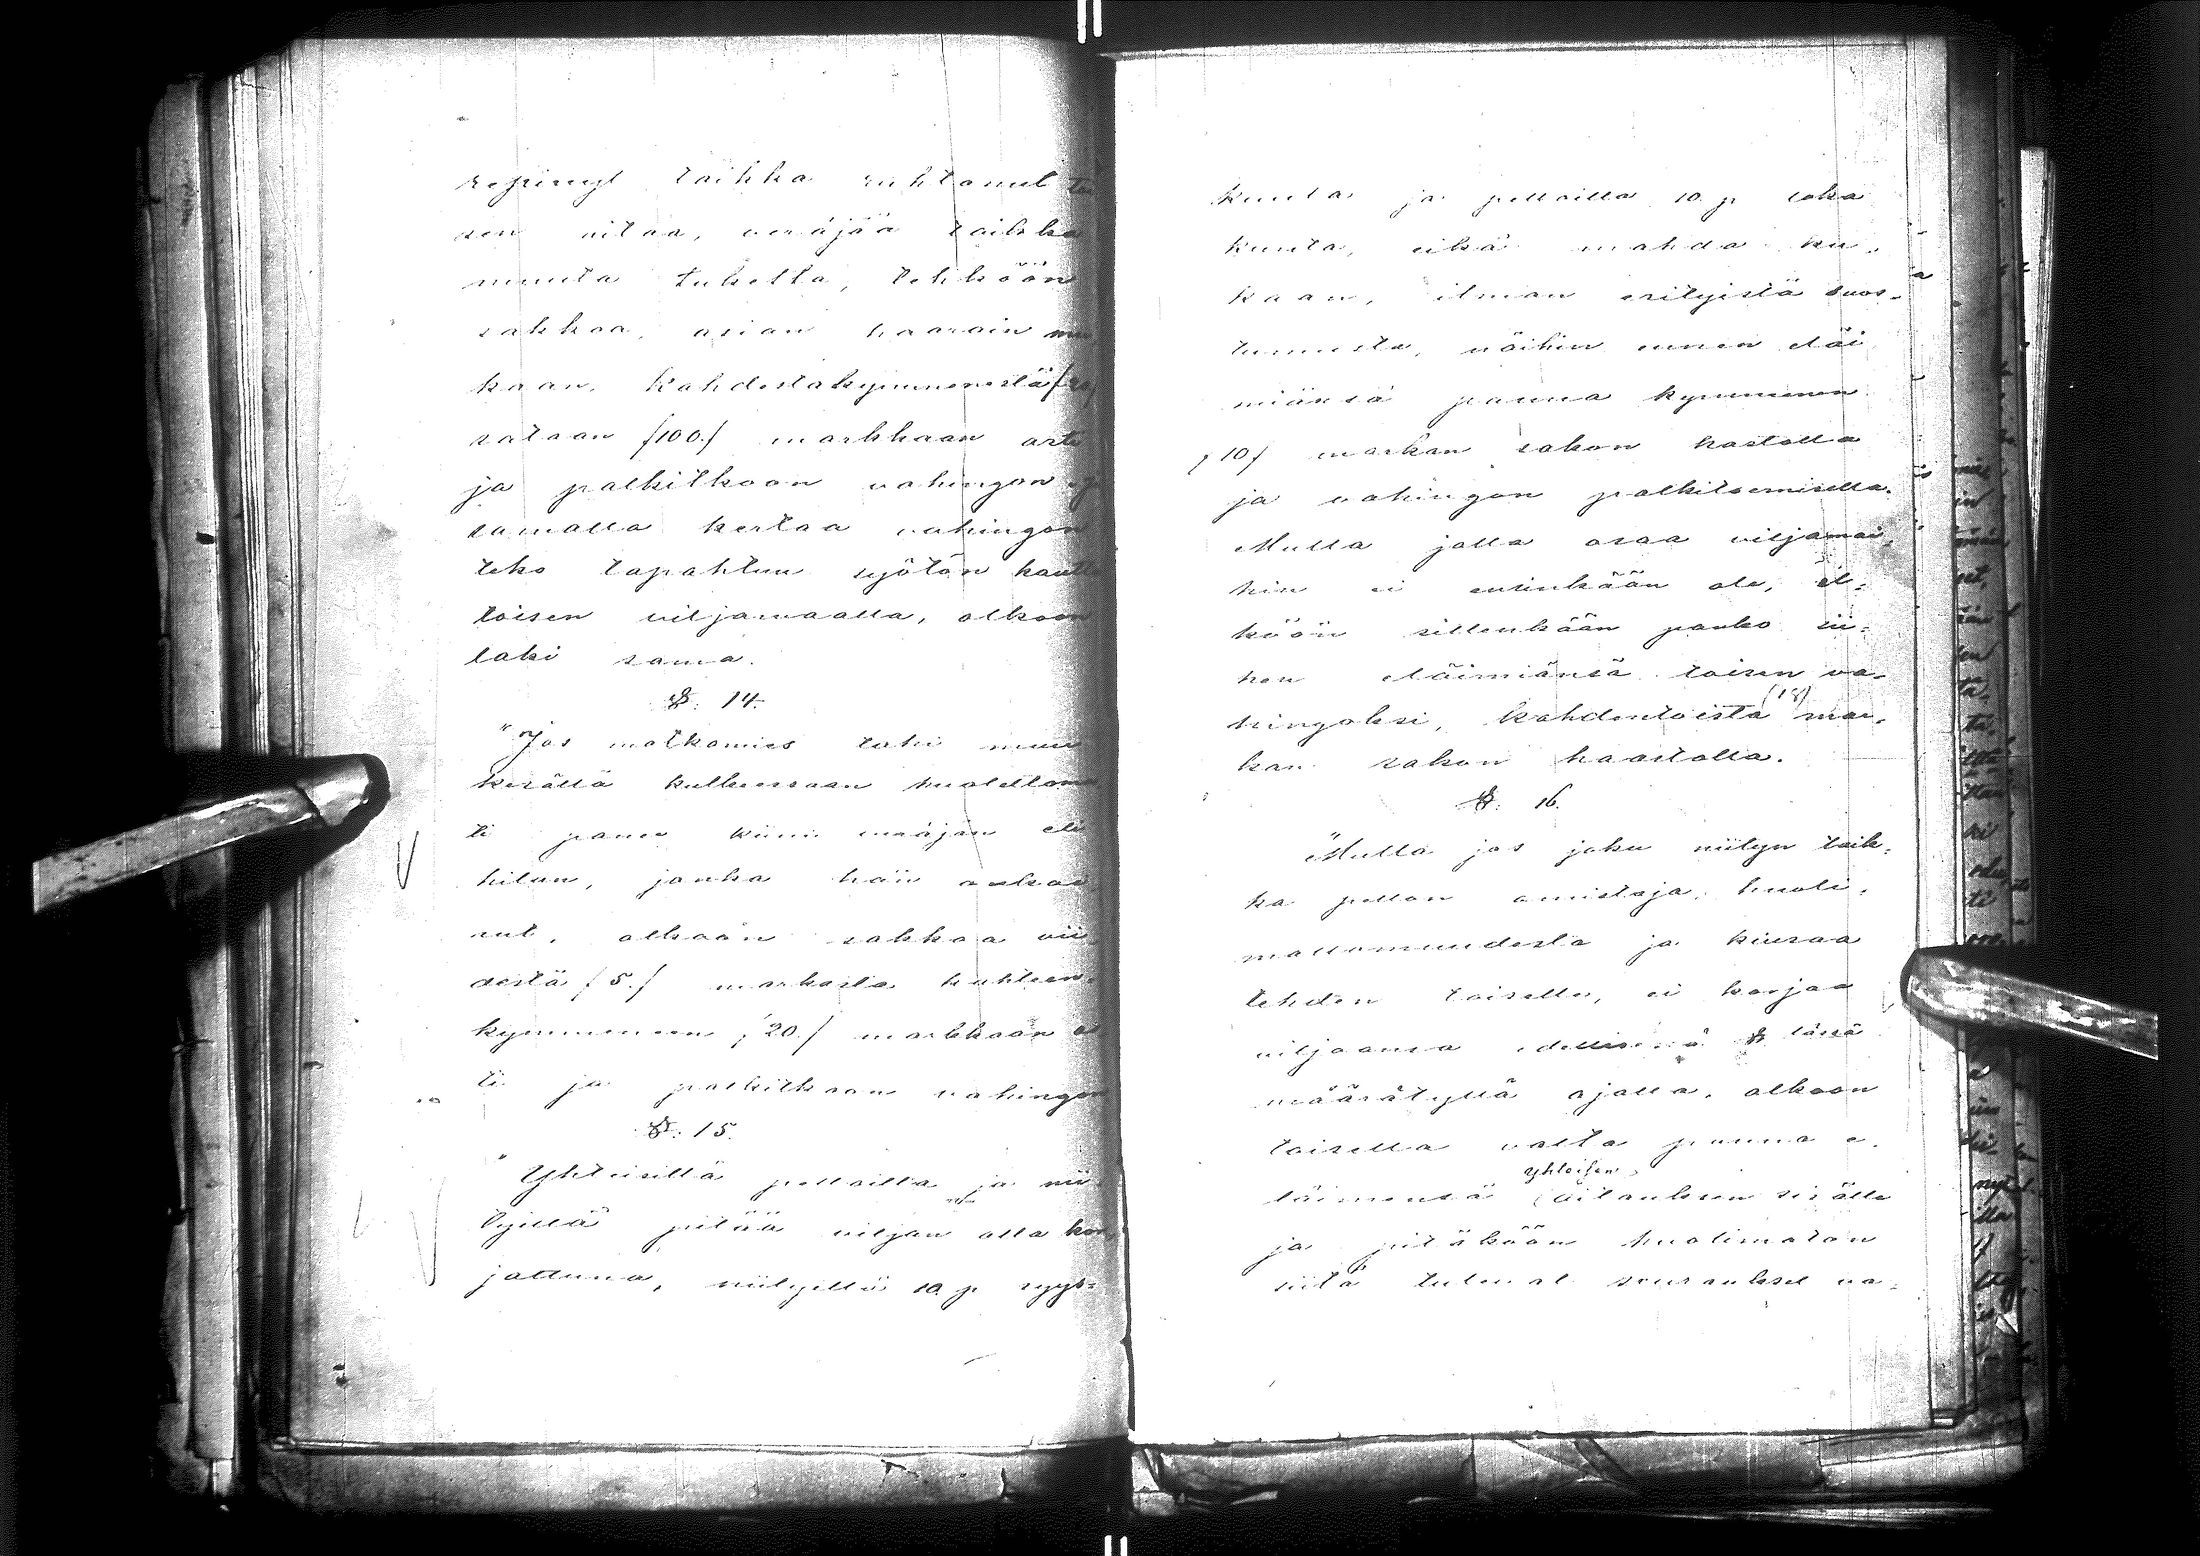 repinyt taikka ruhtonut
sen aitaa, veräjää taikka
muuta tuketta, tehköön
sakkoa, asian haarain mu
kaan, kahdestakymmenestä
sataan /100./ markkaan asti
ja palkitkoon vahingon
samalla kertaa vahingon
teko tapahtuu syötön kautta
toisen viljamaalla, olkoon
laki sama.
§. 14.
"Jos matkamies tahi muu
kesällä kulkeissaan huolettoma
ti panee kiini veräjän eli
hilan, jonka hän avkais
sut, olkoon sakkoa vii
destä /5./ markasta kahteen
kymmeneen /20./ markkaan as
ti ja palkitkoon vahingon
§. 15.
"Yhteisillä pelloilla ja nii
tyillä pitää viljan olla kor
jattuna, niityillä 10 p syys=
kuuta ja pelloilla 10 p loka
kuuta, eikä mahda ku
kaan, ilman erityistä suos=
tumusta, näihin ennen eläi
miänsä panna kymmenen
/10/ markan sakon haastolla
ja vahingon palkitsemisella.
Mutta jolla osaa viljamai,
hin ei ensinkään ole, äl=
köön sillenkään panko sii=
hen eläimiänsä toisen va=
hingoksi, kahdentoista (12) mar=
kan sakon haastolla.
§. 16.
"Mutta jos joku niityn taik=
ka pellon omistaja, huoli=
mattomuudesta ja kiusaa
tehden toisella, ei korjaa
viljaansa edellisessä § lässä
määrätyllä ajalla, olkoon
toisella valta panna e=
läimensä yhteisen aitauksen sisälle
ja pitäköön huolimaton
siitä tulevat seuraukset va=